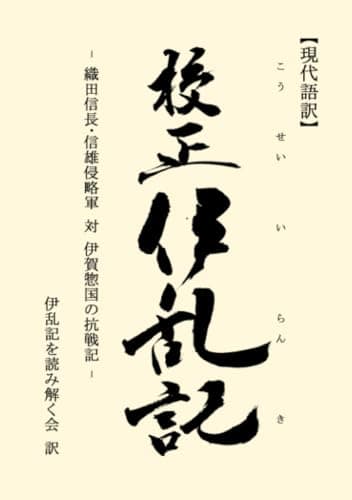 【現代語訳】
こうせいいらんき
校正伊乱記
- 織田信長・信雄侵略軍 対 伊賀惣国の抗戦記 -
伊乱記を読み解く会 訳